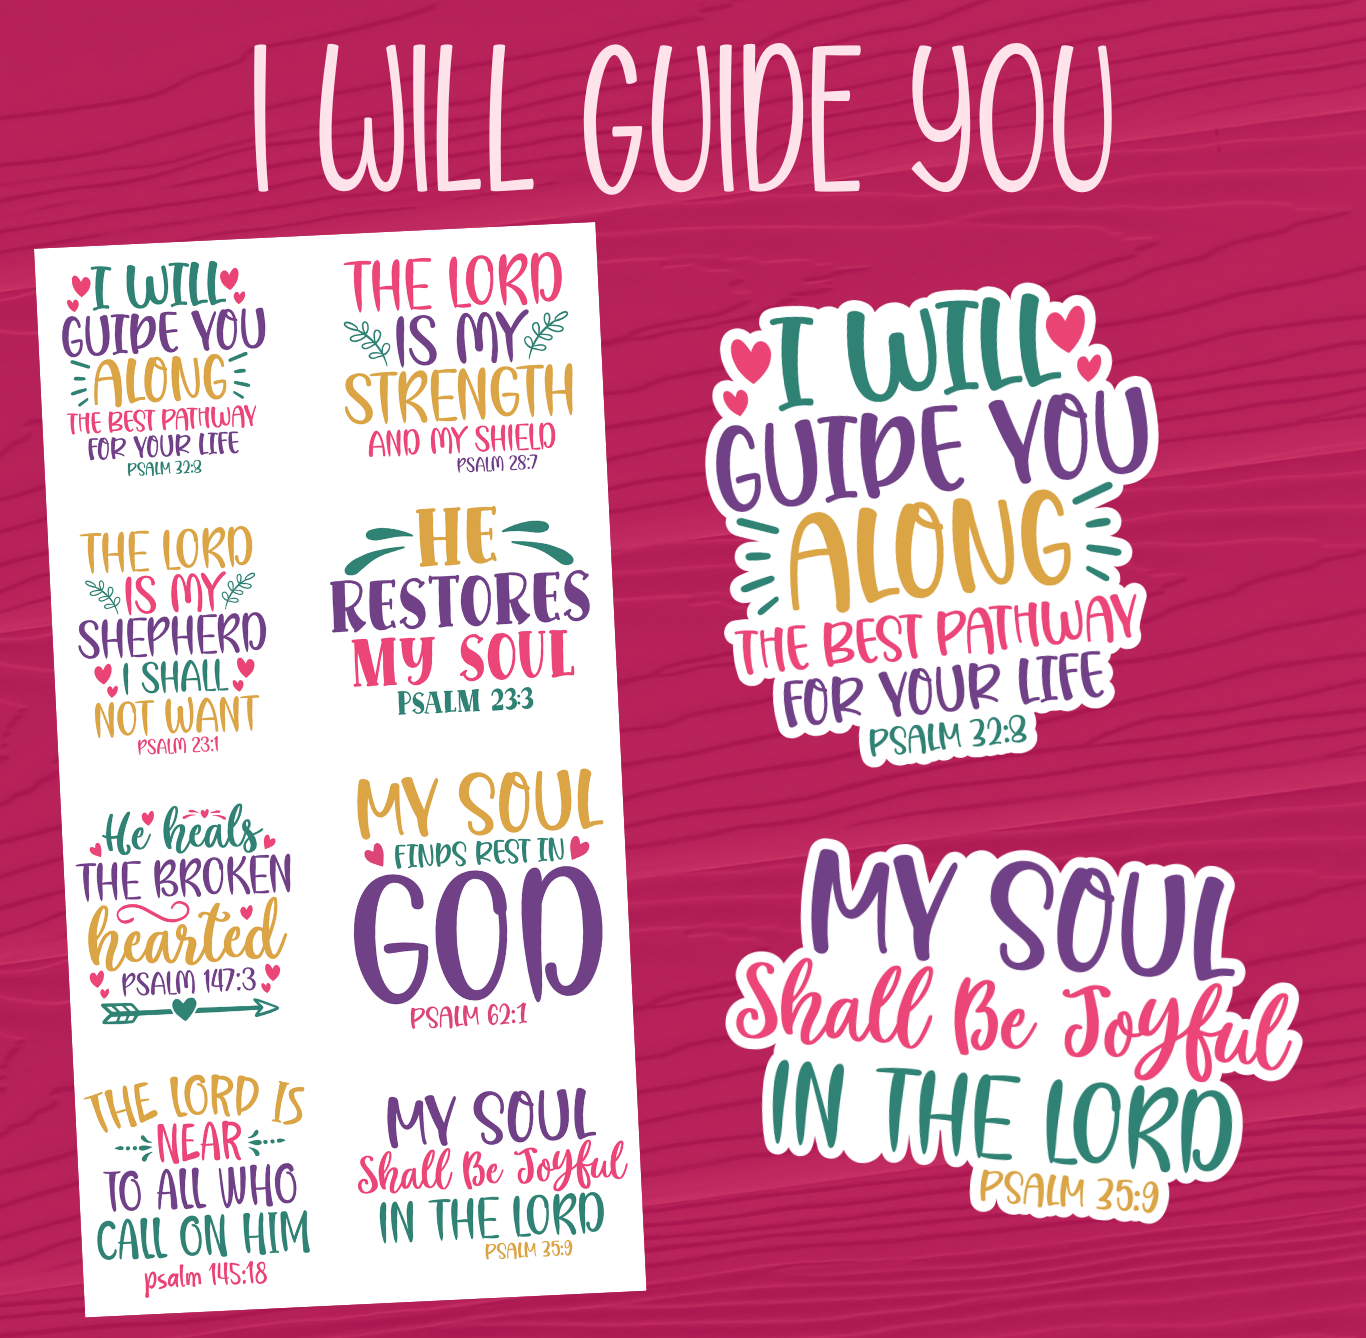 I WILL GUIDE YOU
I WILL
GUIDE YOU
ALONG
THE BEST PATHWAY
FOR YOUR LIFE
PSALM 32:8
THE LORD
IS MY
STRENGTH
AND MY SHIELD
PSALM 28:7
THE LORD
IS MY
SHEPHERD
I SHALL
NOT WANT
PSALM 23:1
HE
RESTORES
MY SOUL
PSALM 23:3
He heals
THE BROKEN
hearted
PSALM 147:3
MY SOUL
FINDS REST IN
GOD
PSALM 62:1
THE LORD IS
NEAR
TO ALL WHO
CALL ON HIM
psalm 145:18
MY SOUL
Shall Be Joyful
IN THE LORD
PSALM 35:9
I WILL
GUIDE YOU
ALONG
THE BEST PATHWAY
FOR YOUR LIFE
PSALM 32:8
MY SOUL
Shall Be Joyful
IN THE LORD
PSALM 35:9